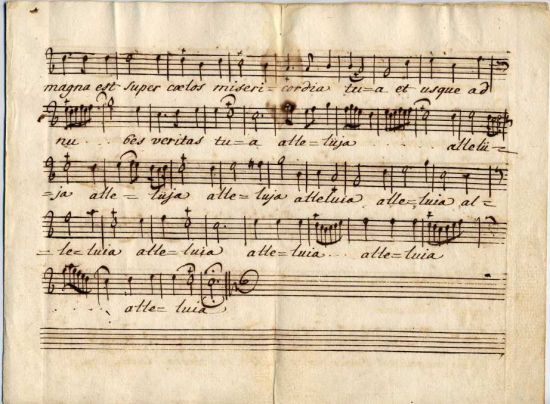 magna est super cœlos miseri=cordia tu=a et usque ad
nu . . . bes veritas tu=a alle=luja . . . . allelu=
=ja alle=luja alle=luja alleluia alle=luia al=
=le=luia alle=luia alle=luia . . . alle=luia
. . . . . alle=luia